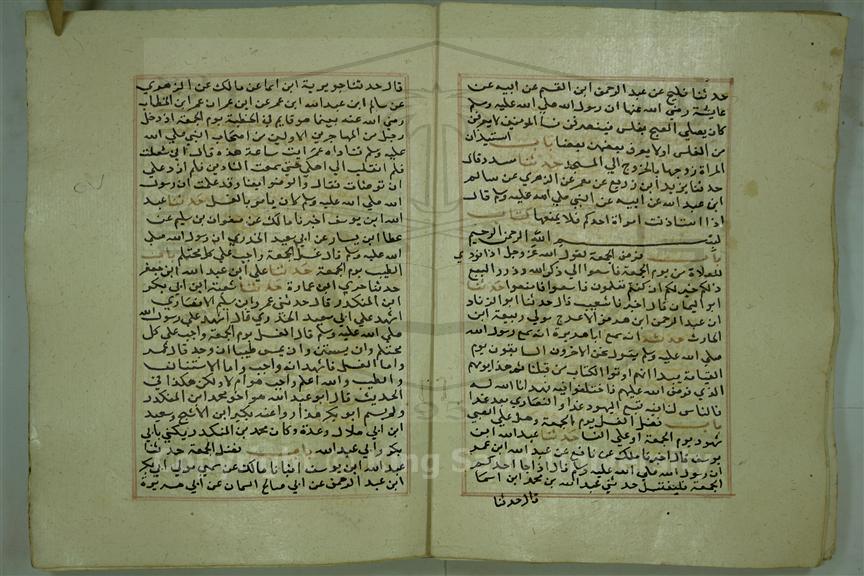 حدثنا فليح عن عبد الرحمن ابن القسم عن ابيه عن
عايشة رضي الله عنها ان رسول الله صلي الله عليه وسلم
كان يصلي الصبح بغلس فينصرفن نسا المومنين لا يعرفن
من الغلس او لا يعرف بعضهن بعضا باب استيذان
المراة زوجها بالخروج الي المسجد حدثنا مسدد قال
حدثنا يزيد ابن زريع عن معمر عن الزهري عن سالم
ابن عبد الله عن ابيه عن النبي صلي الله عليه وسلم قال
اذا استاذنت امراة احدكم فلا يمنعها كتاب
بسم الله الرحمن الرحيم
باب فرض الجمعة لقول الله عز وجل اذا نودي
للصلاة من يوم الجمعة فاسعوا الي ذكر الله وذروا البيع
ذلكم خير لكم ان كنتم تعلمون فاسعوا فامضوا حدثنا
ابو اليمان قال اخبرنا شعيب قال حدثنا ابو الزناد
ان عبد الرحمن ابن هرمز الاعرج مولي ربيعة ابن
الحارث حدثه انه سمع ابا هريرة انه سمع رسول الله
صلي الله عليه وسلم يقول نحن الاخرون السابقون يوم
القيامة بيد انهم اوتوا الكتاب من قبلنا ثم هذا يومهم
الذي فرض الله عليهم فاختلفوا فيه فهدانا الله له
فالناس لنا فيه تبع اليهود غدا والنصاري بعد غد
باب فضل الغسل يوم الجمعة وهل علي الصبي
شهود يوم الجمعة او علي النسا حدثنا عبد الله ابن
يوسف قال اخبرنا مالك عن نافع عن عبد الله ابن عمر
ان رسول الله صلي الله عليه وسلم قال اذا جا احدكم
الجمعة فليغتسل حدثني عبد الله بن محمد ابن اسما
قال حدثنا
قال حدثنا جويرية ابن اسما عن مالك عن الزهري
عن سالم ابن عبد الله ابن عمر عن ابن عمر ان عمر ابن الخطاب
رضي الله عنه بينما هو قايم في الخطبة يوم الجمعة اذ دخل
رجل من المهاجرين الاولين من اصحاب النبي صلي الله
عليه وسلم فناداه عمر اية ساعة هذه قال اني شغلت
فلم انقلب الي اهلي حتي سمعت التاذين فلم ازد علي
ان توضات فقال والوضو ايضا وقد علمت ان رسول
الله صلي الله عليه وسلم كان يامر بالغسل حدثنا عبد
الله ابن يوسف اخبرنا مالك عن صفوان بن سليم عن
عطا ابن يسار عن ابي سعيد الخدري ان رسول الله صلي
الله عليه وسلم قال غسل الجمعة واجب علي كل محتلم باب
الطيب يوم الجمعة حدثنا علي ابن عبد الله ابن جعفر
حدثنا حرمي ابن عمارة حدثنا شعبة ابن ابي بكر
ابن المنكدر قال حدثني عمرو ابن سليم الانصاري
اشهد علي ابي سعيد الخدري قال اشهد علي رسول الله
صلي الله عليه وسلم قال الغسل يوم الجمعة واجب علي كل
محتلم وان يستن وان يمس طيبا ان وجد قال عمر
واما الغسل فاشهد انه واجب واما الاستنان
والطيب والله اعلم واجب هو ام لا ولكن هكذا في
الحديث قال ابو عبد الله هو اخو محمد ابن المنكدر
ولم يسم ابو بكر هذا رواه عنه بكير ابن الاشج وسعيد
ابن ابي هلال وعدة وكان محمد بن المنكدر يكني بابي
بكر وابي عبد الله باب فضل الجمعة حدثنا
عبد الله ابن يوسف انبانا مالك عن سمي مولي ابي بكر
ابن عبد الرحمن عن ابي صالح السمان عن ابي هريرة